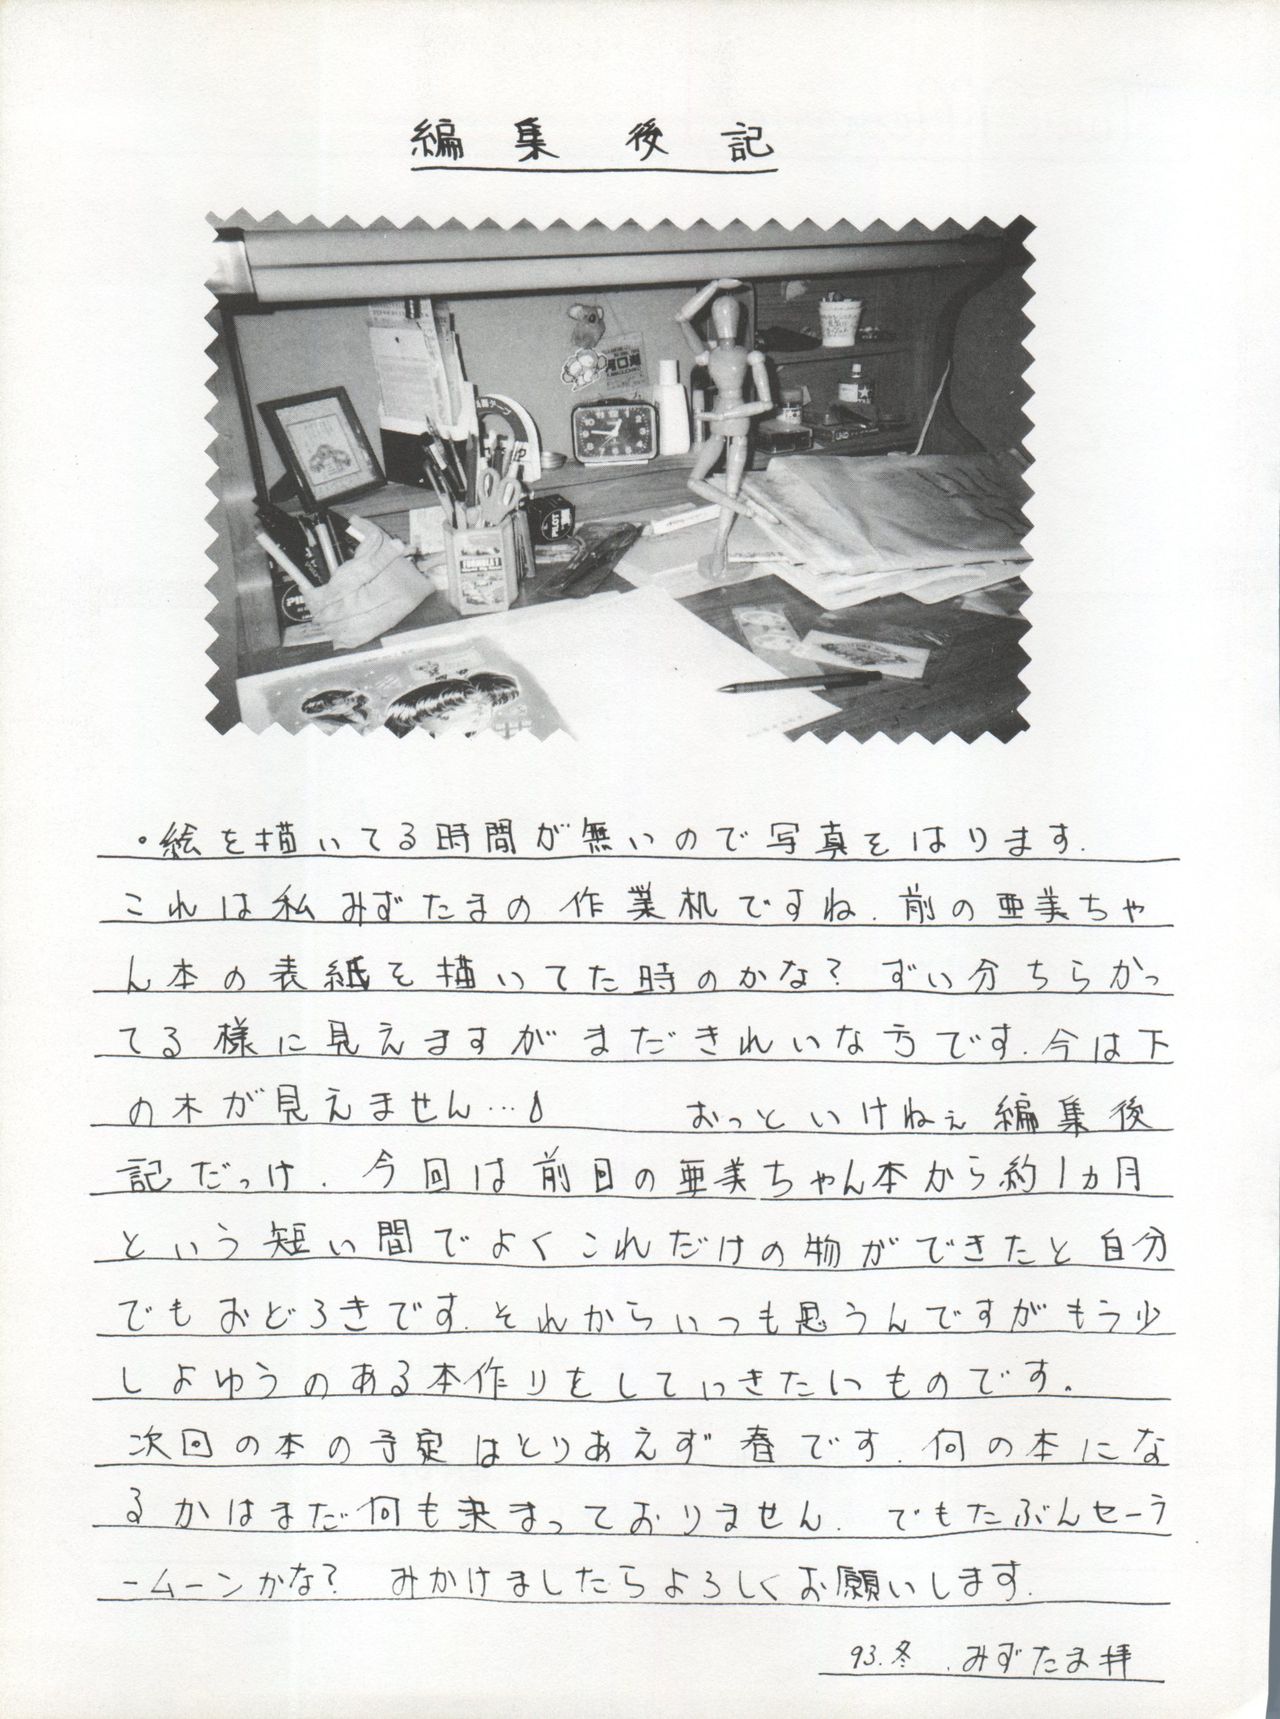 編集後記
両面テープ
河口湖
PILOT
FORMULA 1
・絵を描いてる時間が無いので写真をはります.
これは私みずたまの作業机ですね.前の亜美ちゃ
ん本の表紙を描いてた時のかな?ずい分ちらかっ
てる様に見えますがまだきれいな方です.今は下
の木が見えません… おっといけねぇ編集後
記だっけ.今回は前回の亜美ちゃん本から約1ヵ月
という短い間でよくこれだけの物ができたと自分
でもおどろきです.それからいつも思うんですがもう少
しよゆうのある本作りをしていきたいものです。
次回の本の予定はとりあえず春です.何の本にな
るかはまだ何も決まっておりません.でもたぶんセーラ
ームーンかな?みかけましたらよろしくお願いします.
93.冬.みずたま拝